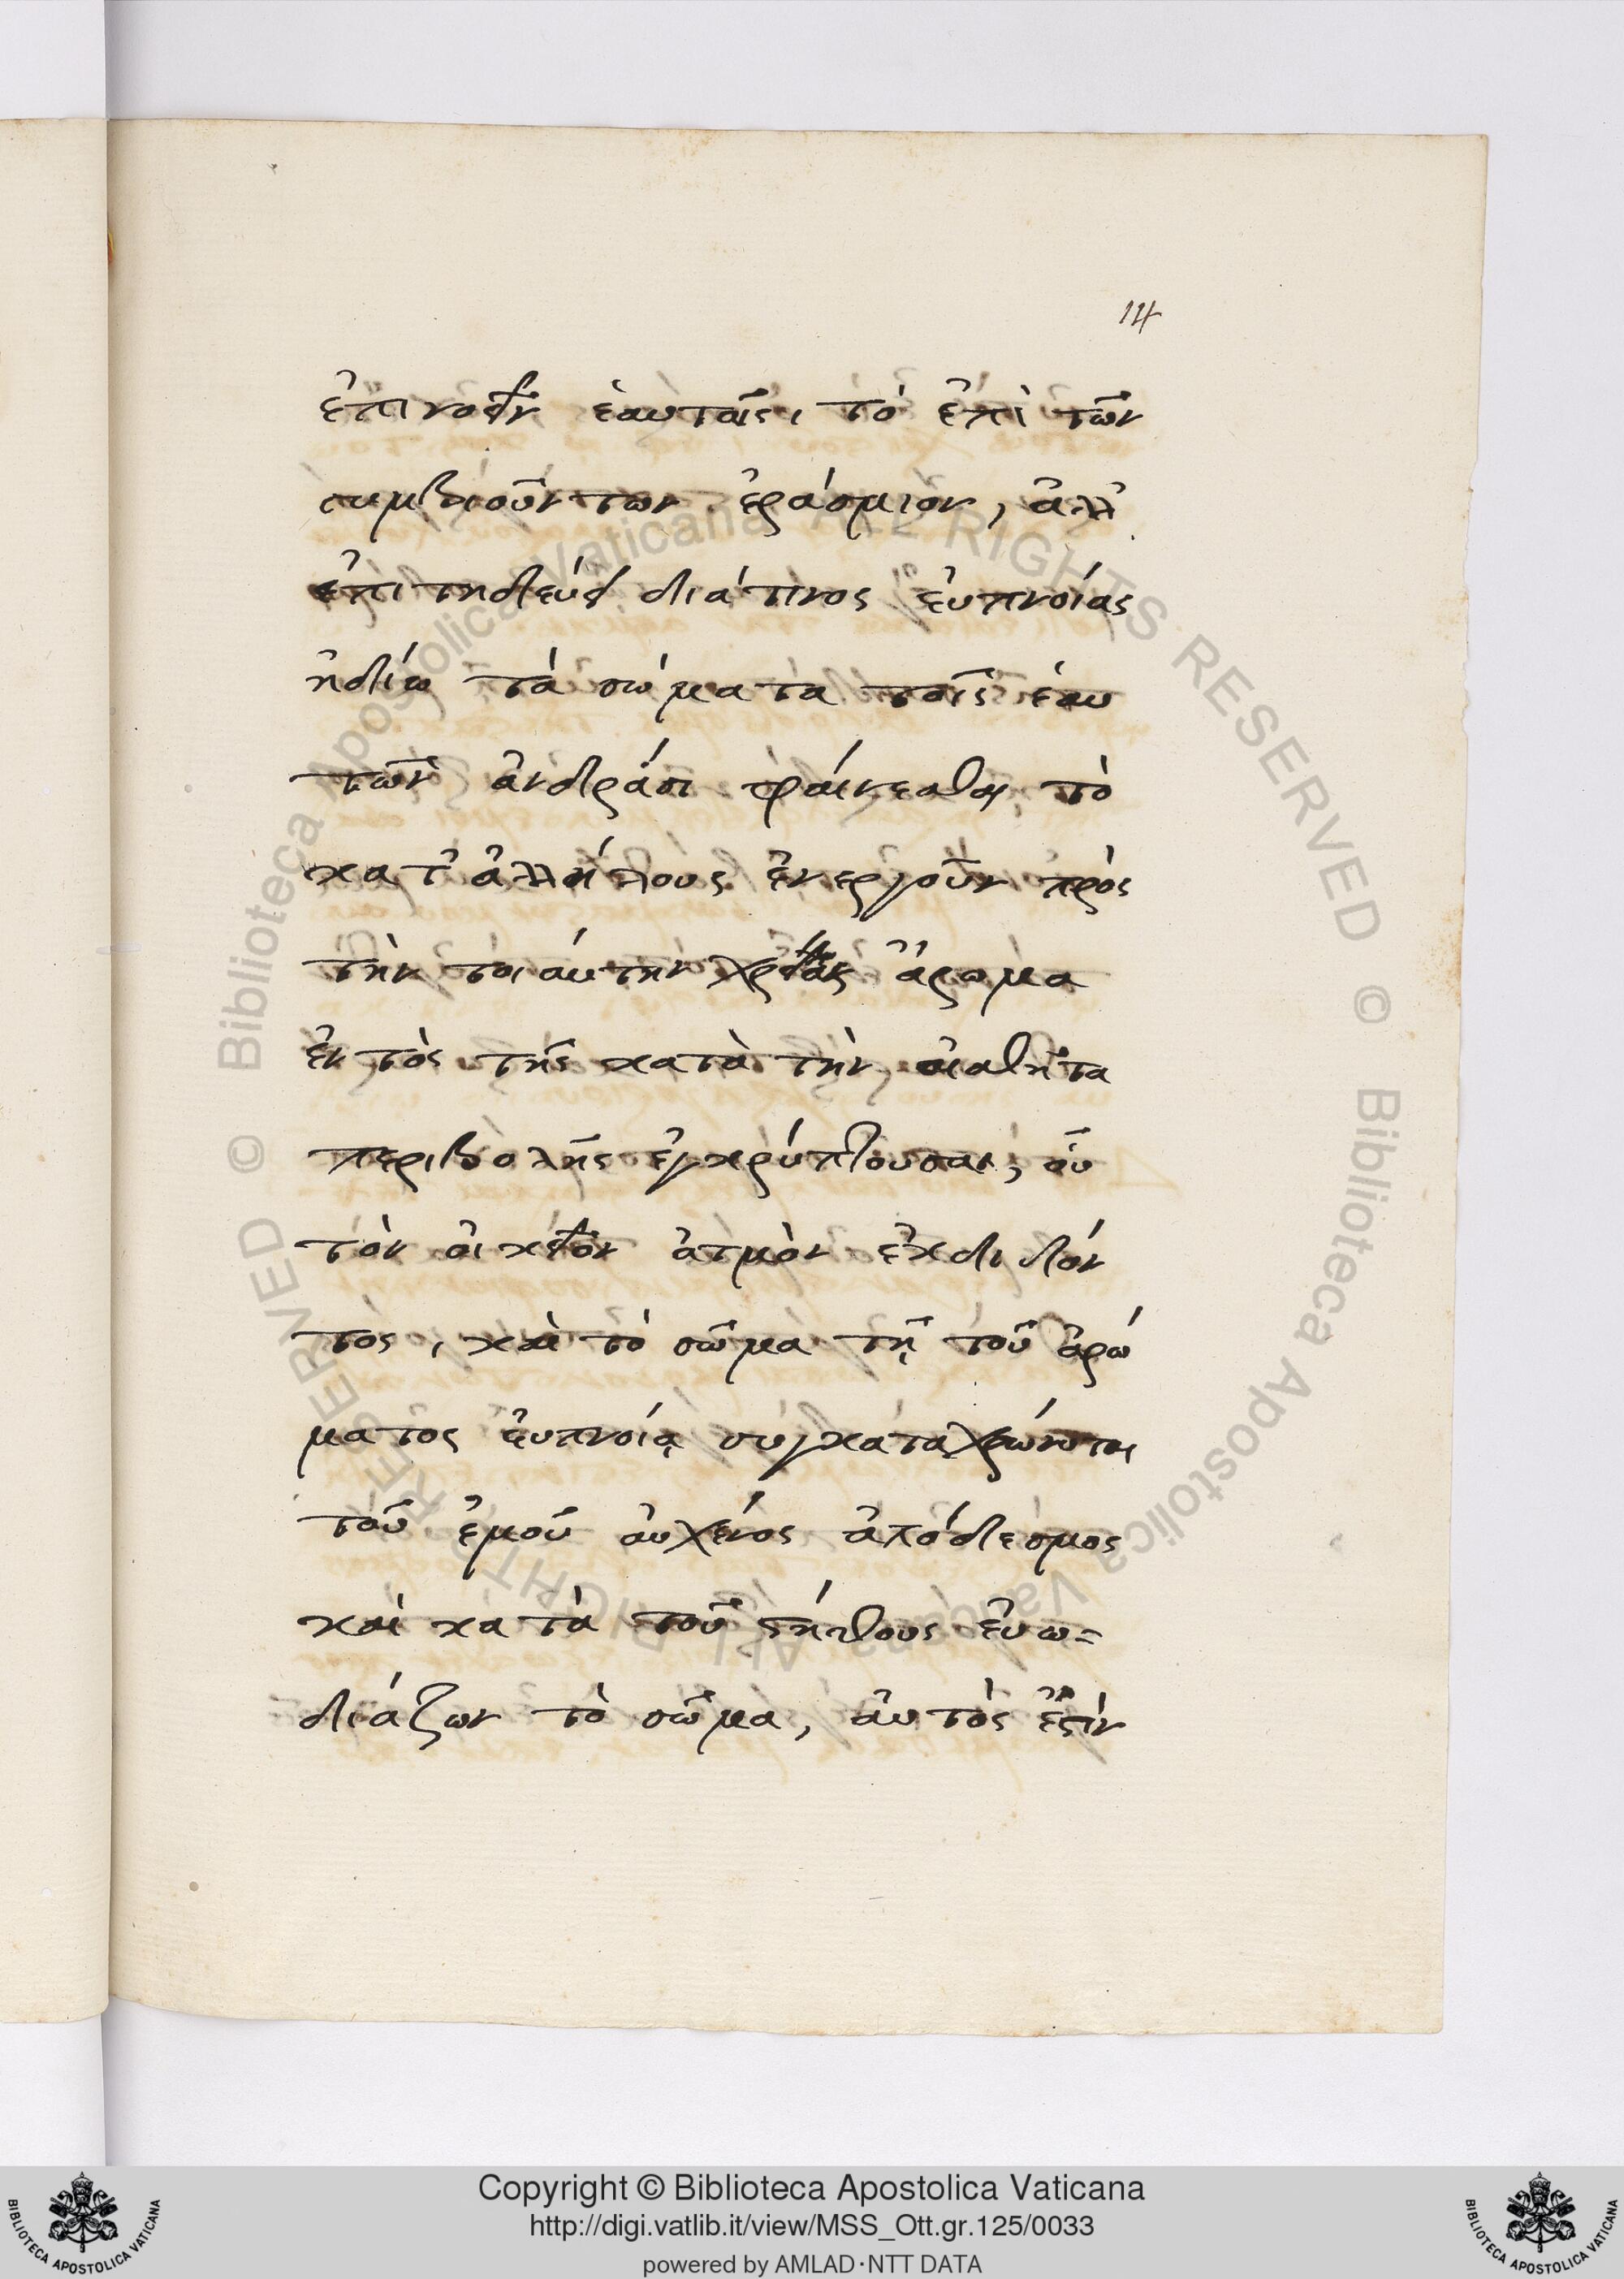 14
ἐπινοεῖν ἑαυταῖς, τὸ ἐπὶ τῶν
συμβιούντων ἐράσμιον, ἀλλ'
ἐπιτηδεύει διά τινος εὐπνοίας
ἡδίω τὰ σώματα τοῖς ἑαυ
τῶν ἀνδράσι φαίνεσθαι, τὸ
κατ' ἀλλήλους ἐνεργοῦν πρὸς
τὴν τοιαύτην ἄρωμα
ἐντὸς τῆς κατὰ τὴν
περιβολῆς ἐγκρύπτουσαι, οὗ
τὸν οἰκεῖον ἀτμὸν ἐκδιδόν
τος, καὶ τὸ σῶμα τῇ τοῦ ἀρώ
ματος εὐπνοίᾳ συγκαταχρώννυται
τοῦ ἐμοῦ αὐχένος ἀπόδεσμος
καὶ κατὰ τοῦ στήθους εὐω=
διάζων τὸ σῶμα, αὐτὸς ἐστὶν
Copyright © Biblioteca Apostolica Vaticana
http://digi.vatlib.it/view/MSS_Ott.gr.125/0033
powered by AMLAD·NTT DATA
BIBLIOTECA APOSTOLICA VATICANA
BIBLIOTECA APOSTOLICA VATICANA
© Biblioteca Apostolica Vaticana ALL RIGHTS RESERVED © Biblioteca Apostolica Vaticana ALL RIGHTS RESERVED